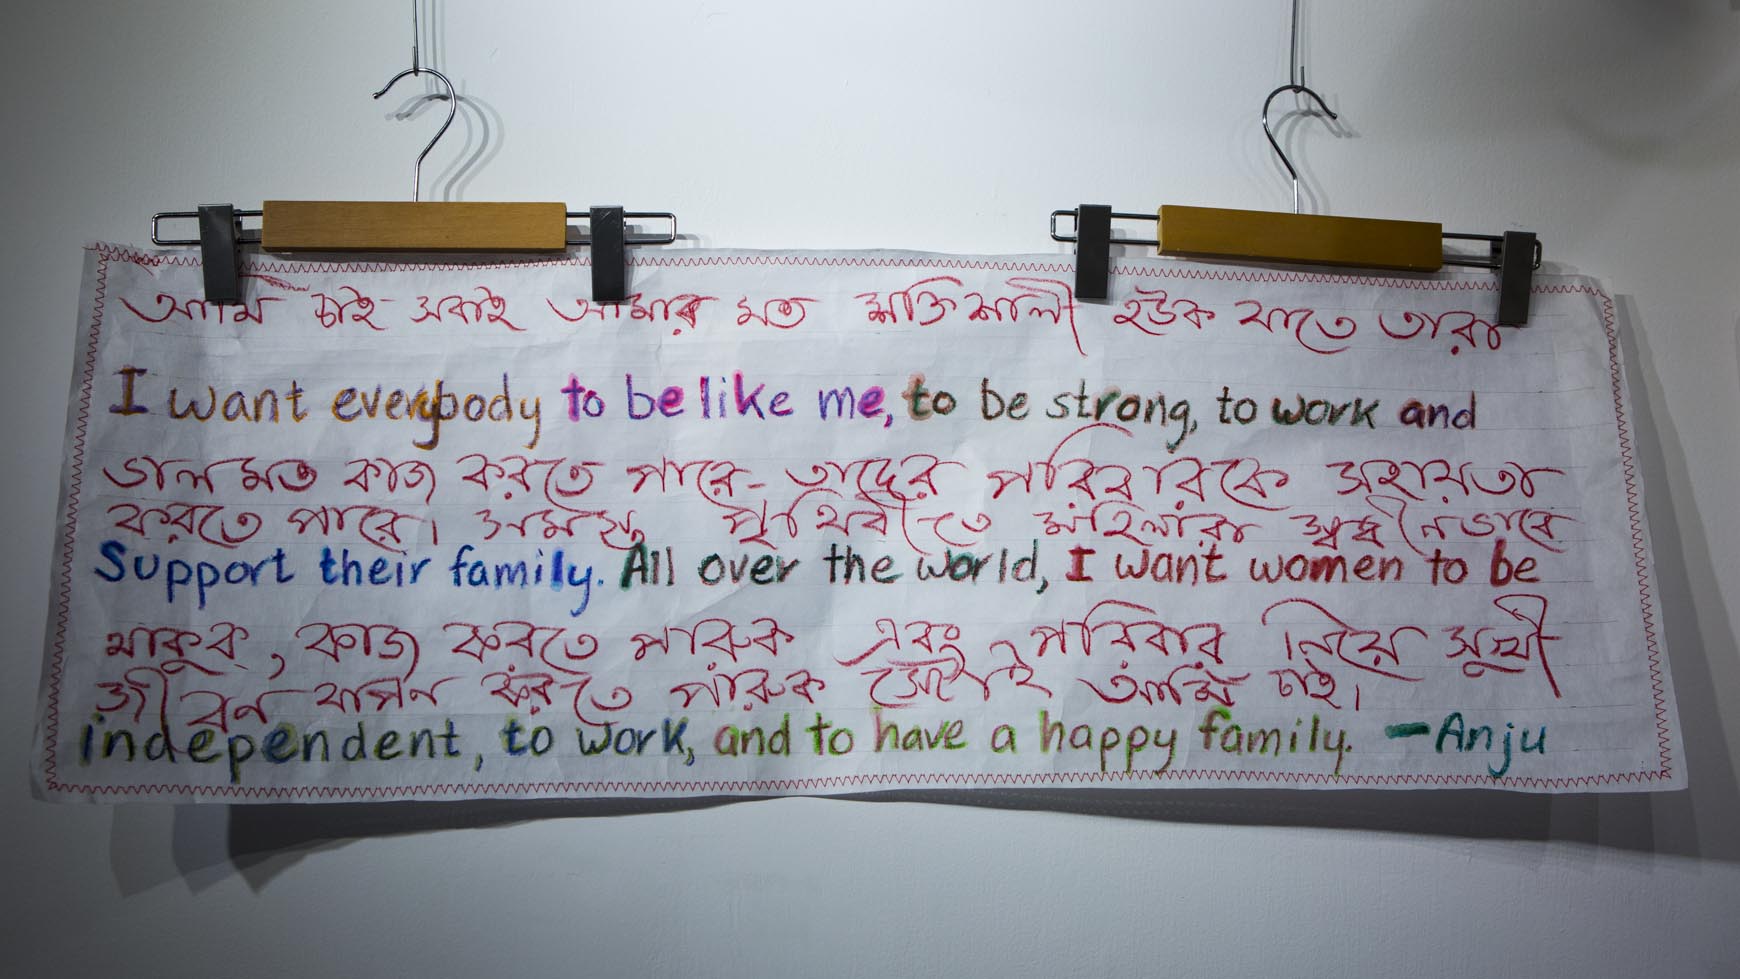 আমি চাই সবাই আমার মত শক্তিশালী হউক যাতে তারা
I want everybody to be like me, to be strong, to work and
ভাল মত কাজ করতে পারে- তাদের পরিবারকে সহায়তা
করতে পারে। সমস্ত পৃথিবীতে মহিলারা
Support their family. All over the world, I want women to be
থাকুক, কাজ করতে পারুক এবং পরিবার নিয়ে সুখী
জীবন যাপন করতে পারুক সেটাই আমি চাই।
independent, to work, and to have a happy family. -Anju